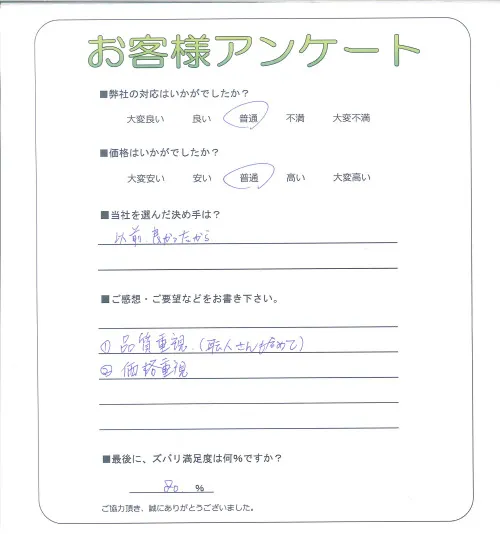 お客様アンケート
■弊社の対応はいかがでしたか？
大変良い 良い 普通 不満 大変不満
■価格はいかがでしたか？
大変安い 安い 普通 高い 大変高い
■当社を選んだ決め手は？
以前良かったから
■ご感想・ご要望などをお書き下さい。
① 品質重視（職人さんも含めて）
② 価格重視
■最後に、ズバリ満足度は何％ですか？
80 %
ご協力頂き、誠にありがとうございました。